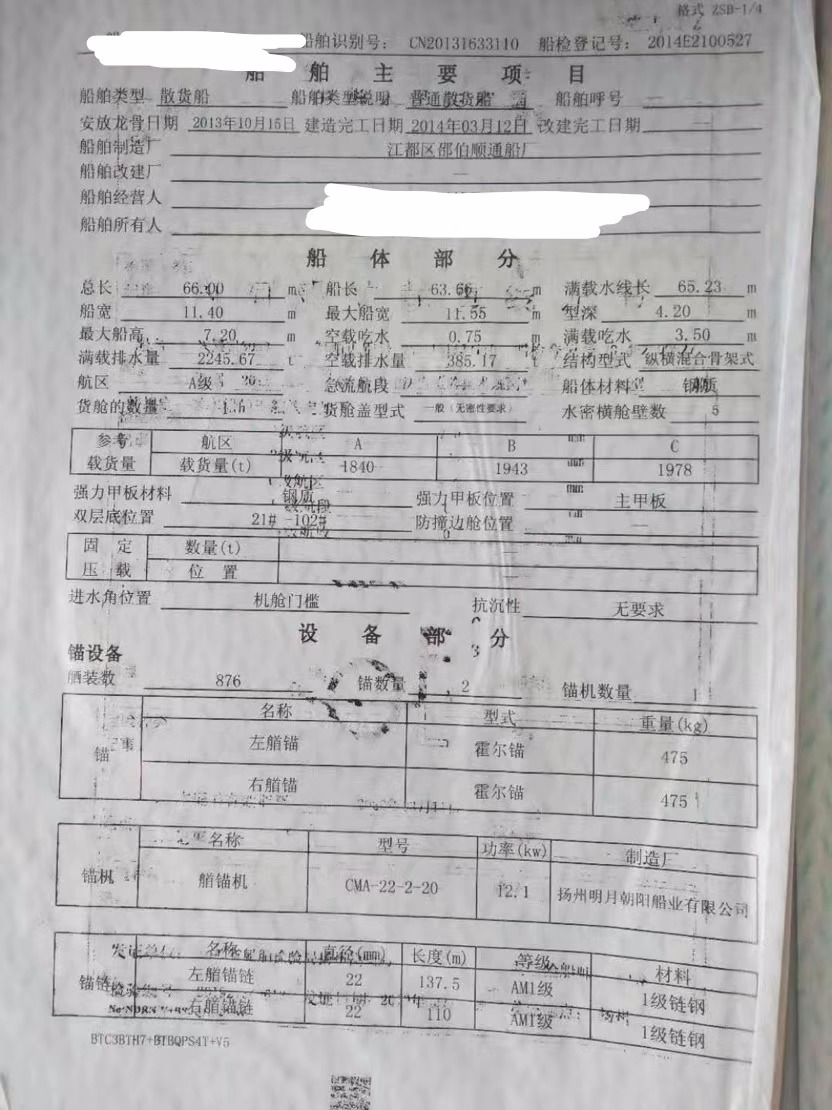 格式 ZSD-1/4
船舶识别号： CN20131633110 船检登记号： 2014E2100527
船 舶 主 要 项 目
船舶类型 散货船 船舶类型说明 普通散货船 船舶呼号 —
安放龙骨日期 2013年10月15日 建造完工日期 2014年03月12日 改建完工日期 —
船舶制造厂 江都区邵伯顺通船厂
船舶改建厂 —
船舶经营人
船舶所有人
船 体 部 分
总长 66.00 m 船长 63.66 m 满载水线长 65.23 m
船宽 11.40 m 最大船宽 11.55 m 型深 4.20 m
最大船高 7.20 m 空载吃水 0.75 m 满载吃水 3.50 m
满载排水量 2245.67 t 空载排水量 385.17 t 结构型式 纵横混合骨架式
航区 A级 急流航段 船体材料 钢质
货舱的数量 货舱盖型式 一般（无密性要求） 水密横舱壁数 5
参考 航区 A B C
载货量 载货量(t) 1840 1943 1978
强力甲板材料 钢质 强力甲板位置 主甲板
双层底位置 21# -102# 防撞边舱位置 —
固 定 数量(t) —
压 载 位 置 —
进水角位置 机舱门槛 抗沉性 无要求
设 备 部 分
锚设备
舾装数 876 锚数量 2 锚机数量 1
名称 型式 重量(kg)
锚 左艏锚 霍尔锚 475
右艏锚 霍尔锚 475
名称 型号 功率(kw) 制造厂
锚机 艏锚机 CMA-22-2-20 12.1 扬州明月朝阳船业有限公司
名称 直径(mm) 长度(m) 等级 材料
锚链 左艏锚链 22 137.5 AM1级 1级链钢
右艏锚链 22 110 AM1级 1级链钢
BTC3BTH7+BTBQPS4T+V5